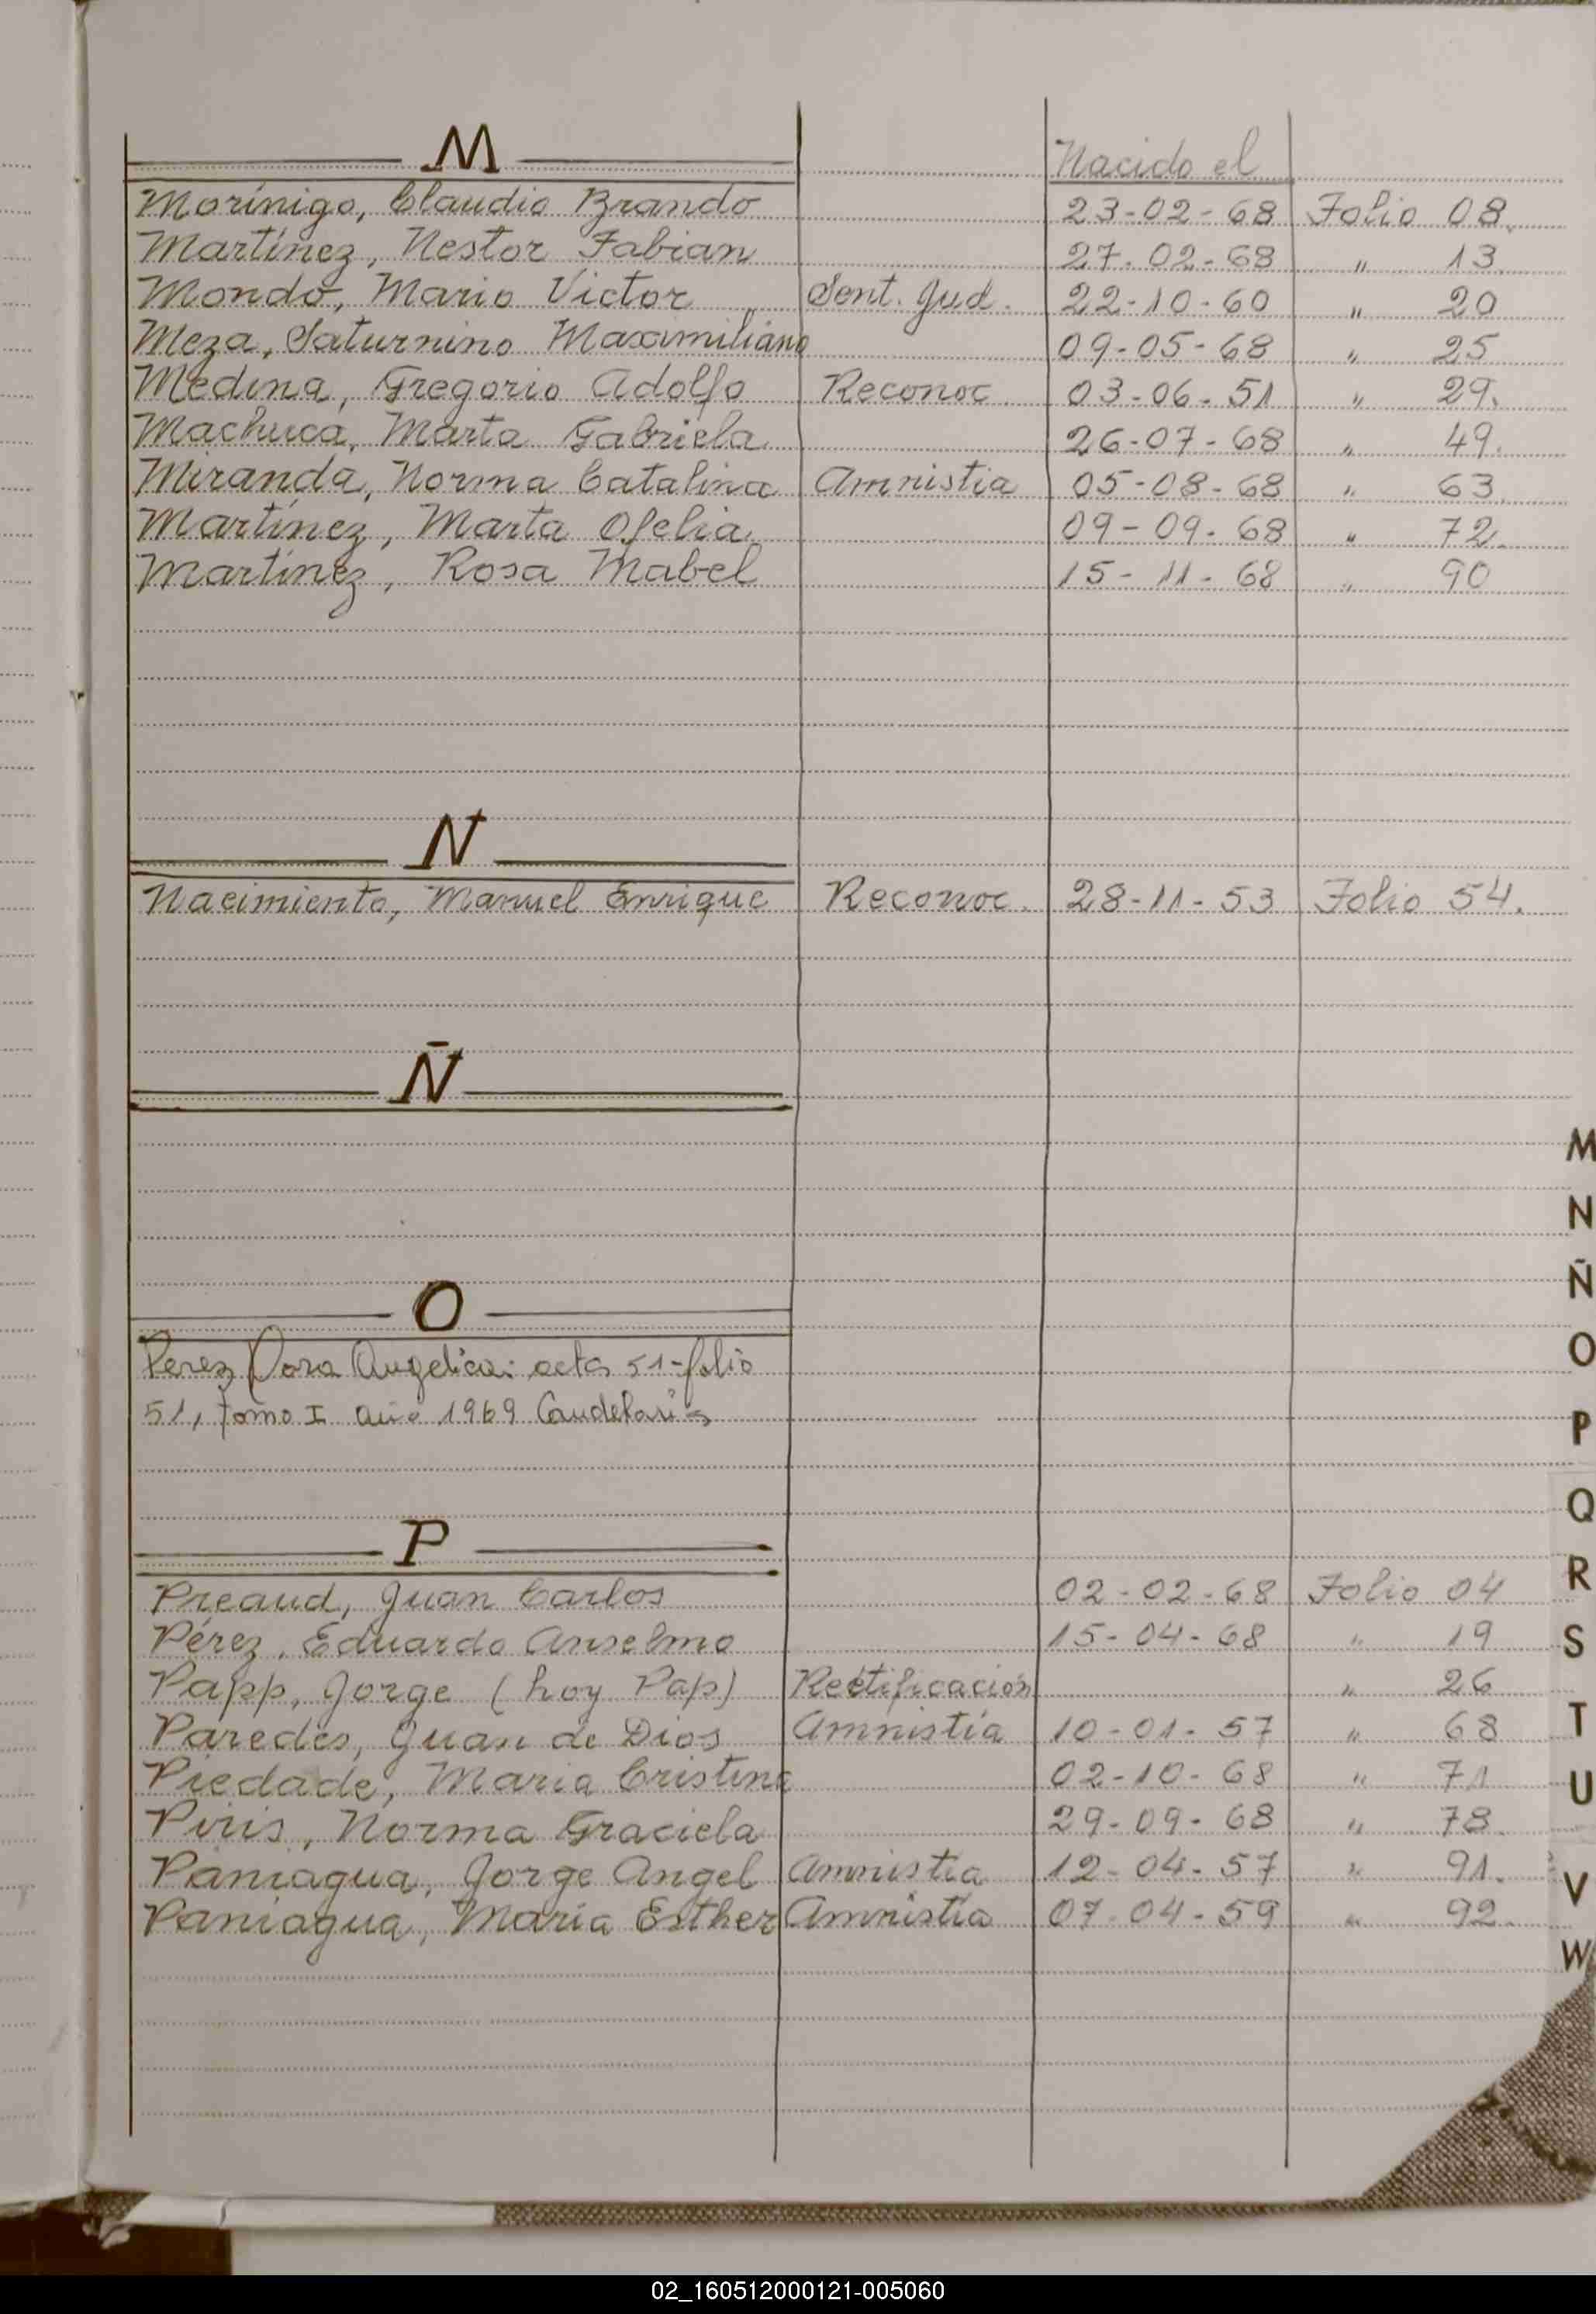 M
Nacido el
Morínigo, Claudio Brando 23-02-68 Folio 08.
Martínez, Nestor Fabian 27-02-68 " 13.
Mondo, Mario Victor Sent. Jud. 22-10-60 " 20
Meza, Saturnino Maxamiliano 09-05-68 " 25
Medina, Gregorio Adolfo Reconoc. 03-06-51 " 29.
Machuca, Marta Gabriela 26-07-68 " 49.
Miranda, Norma Catalina Amnistia 05-08-68 " 63.
Martínez, Marta Ofelia 09-09-68 " 72.
Martínez, Rosa Mabel 15-11-68 " 90
N
Nacimiento, Manuel Enrique Reconoc. 28-11-53 Folio 54.
Ñ
O
Perez Dora Angelica: acta 51-folio
51, Tomo I año 1969 Candelaria
P
Preaud, Juan Carlos 02-02-68 Folio 04
Pérez, Eduardo Anselmo 15-04-68 " 19
Papp, Jorge (hoy Pap) Rectificación " 26
Paredes, Juan de Dios Amnistía 10-01-57 " 68
Piedade, Maria Cristina 02-10-68 " 71
Piris, Norma Graciela 29-09-68 " 78.
Paniagua, Jorge Angel Amnistía 12-04-57 " 91.
Paniagua, María Esther Amnistía 07-04-59 " 92.
M
N
Ñ
O
P
Q
R
S
T
U
V
W
02_160512000121-005060